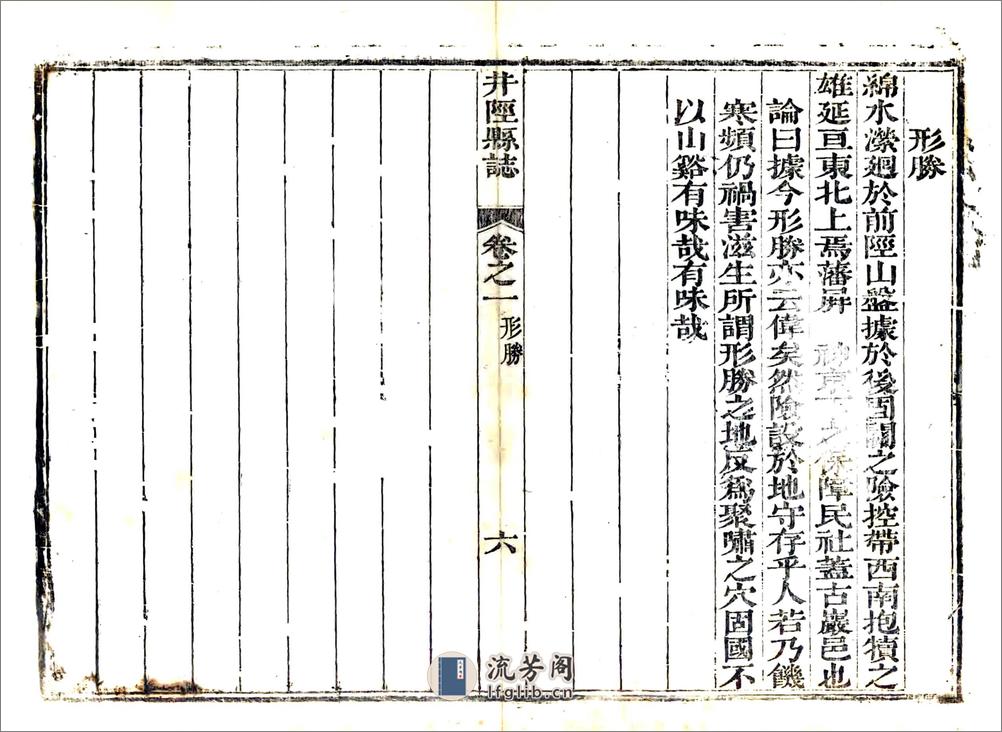 形勝
綿水濚廻於前陘山盤據於後固關之險控帶西南抱犢之
雄延亘東北上焉藩屛 神京下之保障民社蓋古巖邑也
論曰據今形勝亦云偉矣然險設於地守存乎人若乃饑
寒頻仍禍害滋生所謂形勝之地反爲聚嘯之穴固國不
以山谿有味哉有味哉
井陘縣誌 卷之一 形勝 六
流芳阁
lfglib.cn